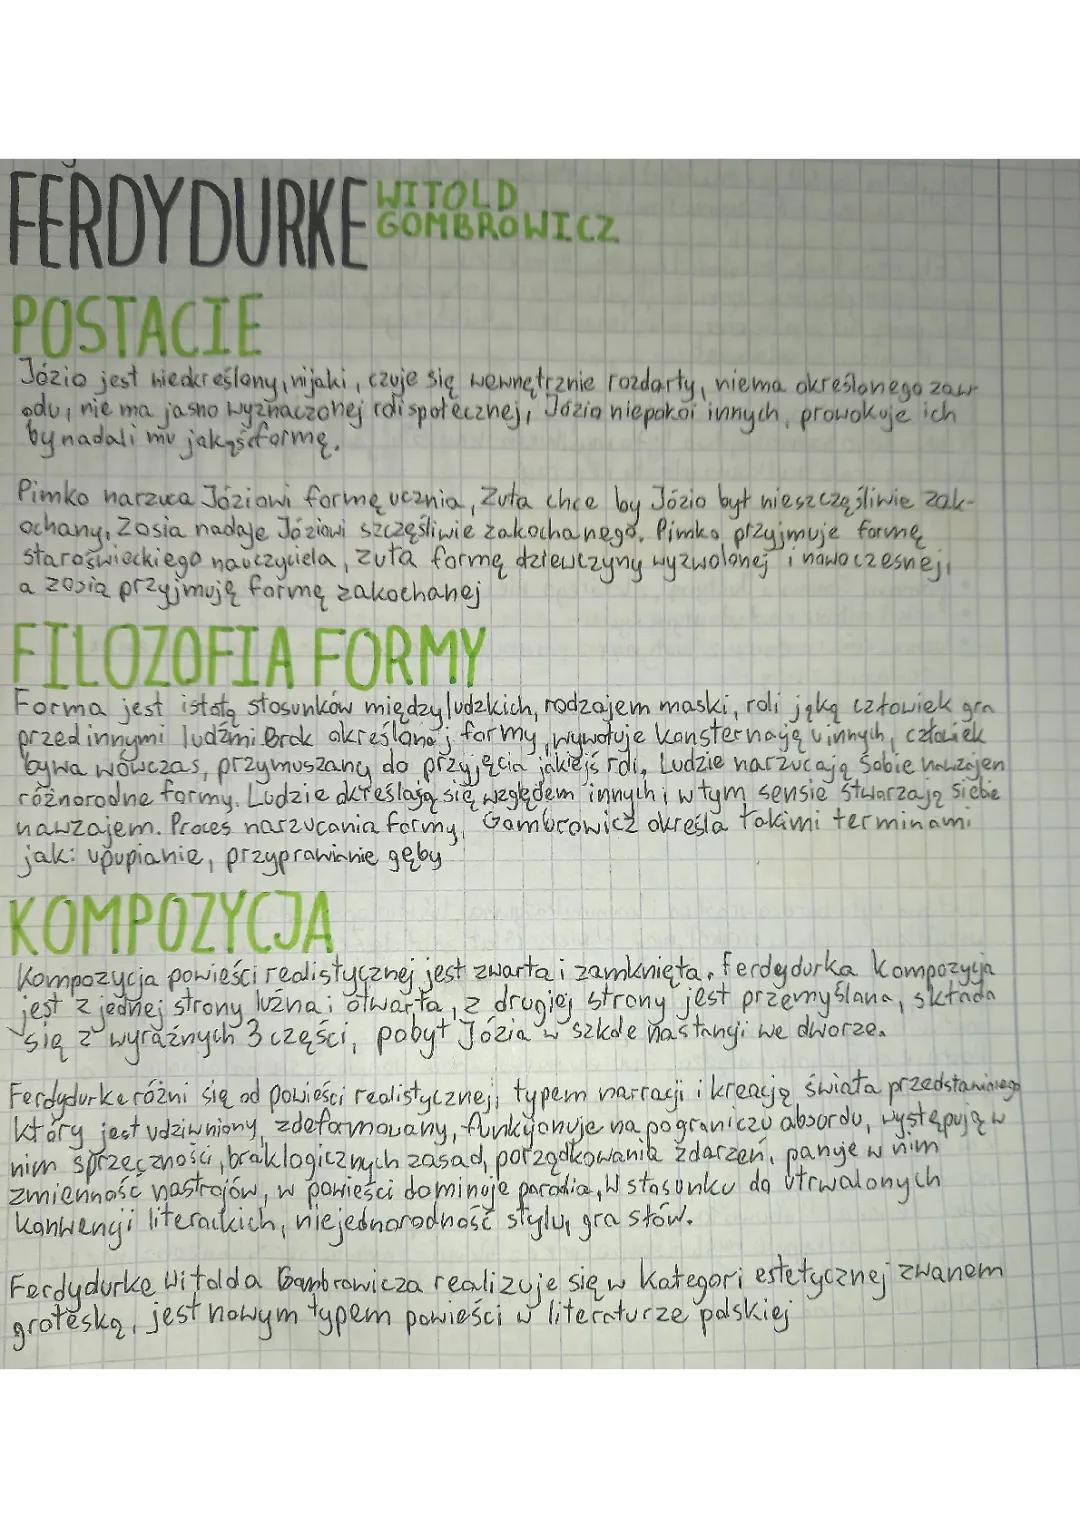 FERDYDURKE WITOLD
GOMBROWICZ
POSTACIE
Józio jest niedkreślony, nijaki, czuje się wewnętrznie rozdarty, niema określonego zaw-
odu, nie ma jasno wyznaczonej roli społecznej, Józio niepokoi innych, prowokuje ich
by nadali mu jakąś formę.
Pimko narzuca Józiowi formę ucznia, Zuta chce by Józio był nieszczęśliwie zak-
ochany, Zosia nadaje Józiowi szczęśliwie zakochanego. Pimko przyjmuje formę
staroświeckiego nauczyciela, zuta formę dziewczyny wyzwolonej i nowoczesnej,
a zosia przyjmuję formę zakochanej
FILOZOFIA FORMY
Forma jest istotą stosunków międzyludzkich, rodzajem maski, roli jąką człowiek gra
przed innymi ludźmi Brak określonej formy, wywołuje konsternację u innych, człowiek
bywa wówczas, przymuszany do przyjęcia jakiejś roli, Ludzie narzucają sobie nawzajem
różnorodne formy. Ludzie określają się względem innych i w tym sensie stwarzają siebie
nawzajem. Proces narzucania formy, Gombrowicz określa takimi terminami
jak: upupianie, przyprawianie gęby
KOMPOZYCJA
Kompozycja powieści realistycznej jest zwarta i zamknięta. Ferdydurka kompozycja
jest z jednej strony luźna i otwarta, z drugiej strony jest przemyślana, składa
się z wyraźnych 3 części, pobyt Józia w szkole na stancji we dworze.
Ferdydurke różni się od powieści realistycznej, typem narracji i kreacją świata przedstawionego
który jest udziwniony, zdeformowany, funkcjonuje na pograniczu absordu, występują w
nim sprzęczności, brak logicznych zasad, porządkowania zdarzeń, panuje w nim
zmienność nastrojów, w powieści dominuje parodia, W stosunku do utrwalonych
konwencji literackich, niejednorodność stylu, gra słów.
Ferdydurke Witolda Gombrowicza realizuje się w kategori estetycznej zwanem
groteską, jest nowym typem powieści w literaturze polskiej